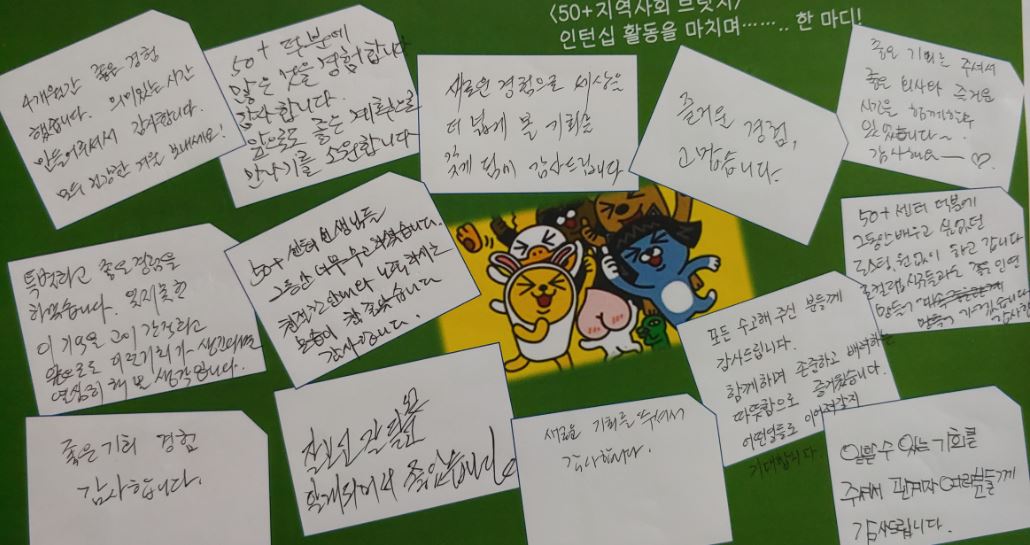 <50+지역사회 브릿지>
인턴십 활동을 마치며…….. 한 마디!
4개월간 좋은 경험
했습니다. 의미있는 시간
만들어주셔서 감사합니다.
모두 건강한 겨울 보내세요!
50+ 덕분에
많은 것을 경험합니다
감사합니다.
앞으로도 좋은 계획으로
만나기를 소원합니다
새로운 경험으로 세상을
더 넓게 볼 기회를
갖게 됨이 감사드립니다
즐거운 경험,
고맙습니다.
좋은 기회를 주셔서
좋은 인사와 즐거운
시간을 함께한
있었습니다~.
감사해요 ♡.
특별하고 좋은 경험을
하였습니다. 잊지못할
이 기억은 고이 간직하고
앞으로도 이런기회가 생긴다면
열심히 해 볼 생각입니다.
50+ 센터 선생님들
그동안 너무 수고하셨습니다.
현장에
모습이 참 좋았습니다
감사합니다.
50+ 센터 덕분에
그동안 배우고 싶었던
로스터, 원없이 하고 갑니다
로컬랩 식구들과도 좋은 인연
만들고 가겠습니다
감사
모든 수고해 주신 분들께
감사드립니다.
함께하며 존중하고 배려하는
따뜻함으로 즐거웠습니다.
어떤일들로 이어져갈지
기대합니다.
좋은 기회 경험
감사합니다.
잘 보낸 한 달을
함께되어서 좋았습니다
새로운 기회를 주셔서
감사합니다.
일할 수 있는 기회를
주셔서 관계자 여러분들께
감사드립니다.